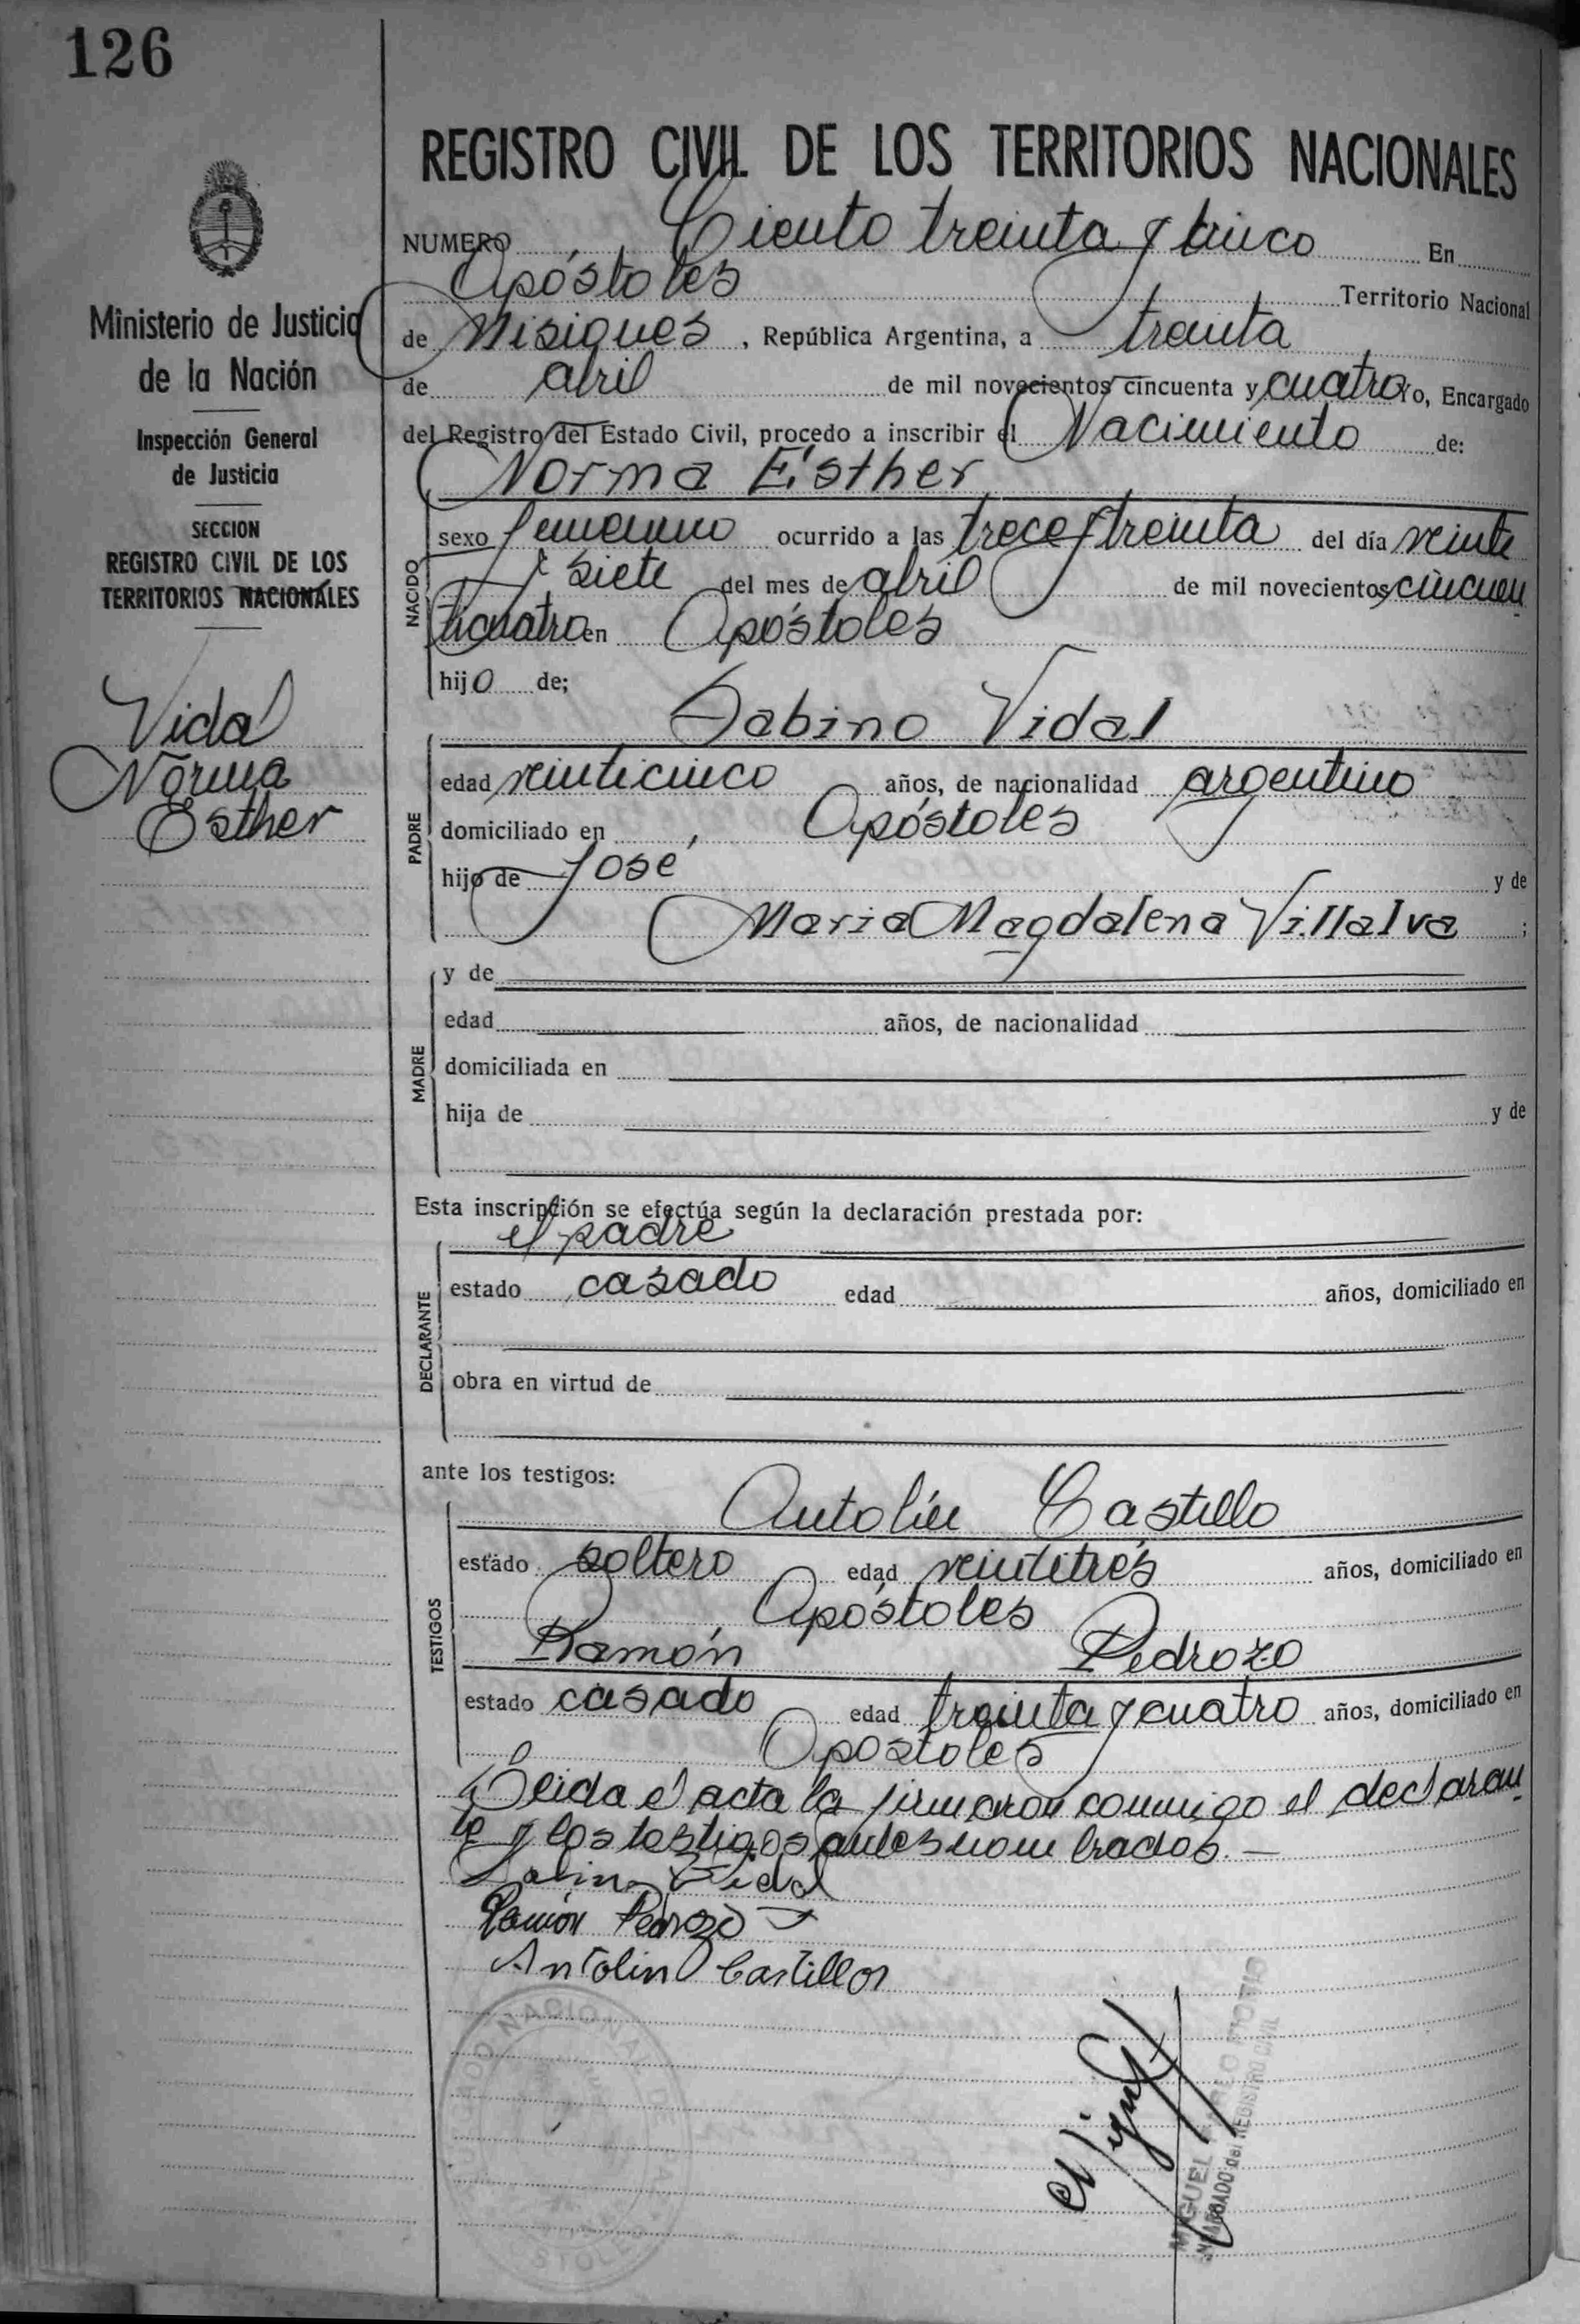 126
REGISTRO CIVIL DE LOS TERRITORIOS NACIONALES
NUMERO Ciento treinta y cinco En
Apóstoles Territorio Nacional
de Misiones, República Argentina, a treinta
de abril de mil novecientos cincuenta y cuatro Yo, Encargado
del Registro del Estado Civil, procedo a inscribir el Nacimiento de:
Norma Esther
sexo femenino ocurrido a las trece y treinta del día veinte
y siete del mes de abril de mil novecientos cincuen
ticuatro en Apóstoles
hijo de;
NACIDO
Sabino Vidal
edad veinticinco años, de nacionalidad argentino
domiciliado en Apóstoles
hijo de José y de
Maria Magdalena Villalva ;
PADRE
y de
edad años, de nacionalidad
domiciliada en
hija de y de
MADRE
Esta inscripción se efectúa según la declaración prestada por:
el padre
estado casado edad años, domiciliado en
obra en virtud de
DECLARANTE
ante los testigos:
Antolín Castillo
estado soltero edad veintitrés años, domiciliado en
Apóstoles
Ramón Pedrozo
estado casado edad treinta y cuatro años, domiciliado en
Apostoles
TESTIGOS
Leida el acta la firmaron conmigo el declaran
te y los testigos antes nombrados.—
Sabino Vidal
Ramón Pedrozo
Antolin Castillo
MIGUEL
ENCARGADO del REGISTRO CIVIL
Ministerio de Justicia
de la Nación
Inspección General
de Justicia
SECCION
REGISTRO CIVIL DE LOS
TERRITORIOS NACIONALES
Vidal
Norma
Esther